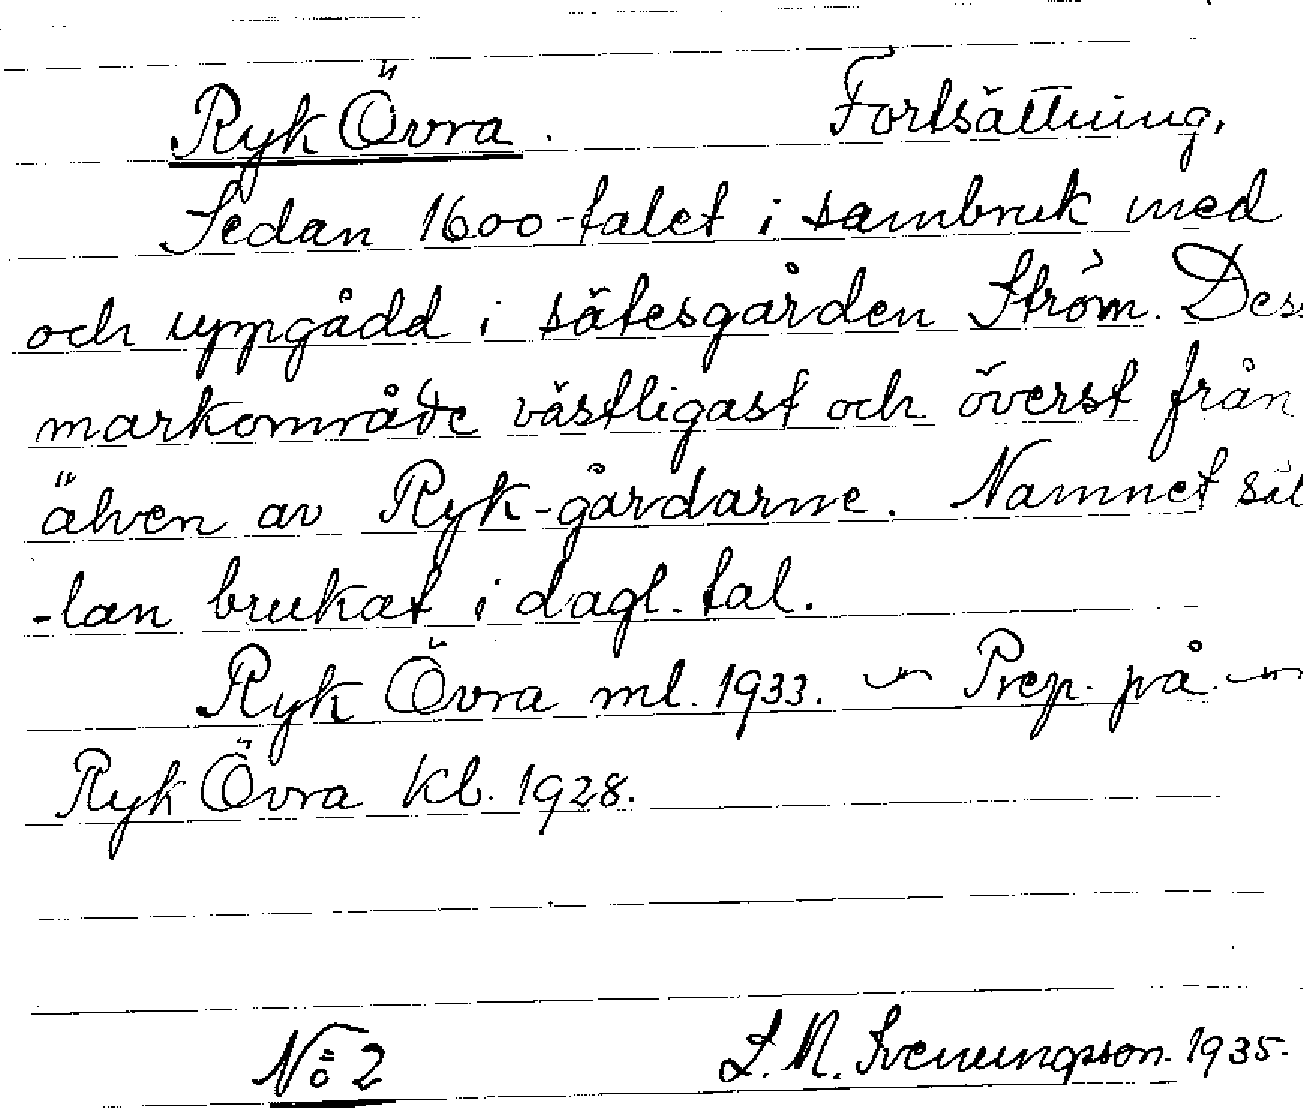 Ryk Övra. Fortsättning.
Sedan 1600-talet i sambruk med
och uppgådd i sätesgården Ström. Dess
markområde västligast och överst från
älven av Ryk-gårdarne. Namnet säl
-lan brukat i dagl. tal.
Ryk Övra ml. 1933. ~ Prep. på ~
Ryk Övra kl. 1928.
No 2 L. M. Svenungsson. 1935.